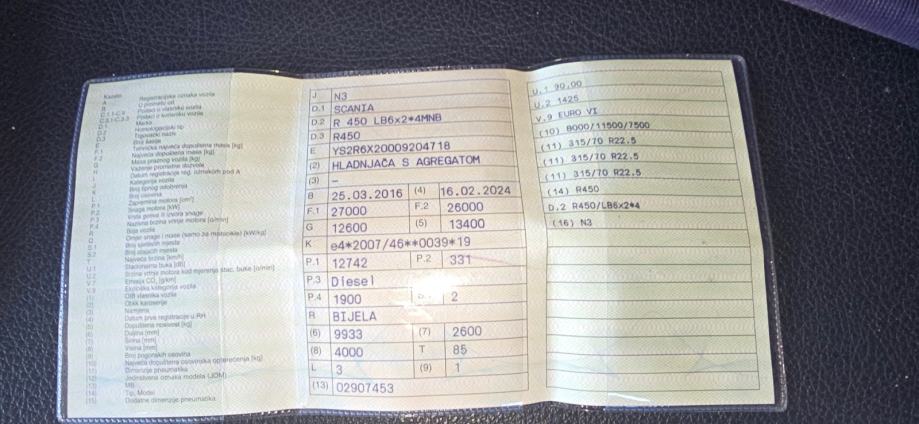 Kazalo
A Registracijska oznaka vozila
B U prometu od
C.1.1-C.4 Podaci o vlasniku vozila
Podaci o korisniku vozila
D.1 Marka
D.2 Homologacijski tip
D.3 Trgovački naziv
E Broj šasije
F.1 Tehnička najveća dopuštena masa [kg]
F.2 Najveća dopuštena masa [kg]
G Masa praznog vozila [kg]
H Važenje prometne dozvole
I Datum registracije reg. oznakom pod A
J Kategorija vozila
K Broj tipnog odobrenja
L Broj osovina
P.1 Zapremina motora [cm³]
P.2 Snaga motora [kW]
P.3 Vrsta goriva ili izvora snage
P.4 Nazivna brzina vrtnje motora [o/min]
R Boja vozila
Q Omjer snage i mase (samo za motocikle) [kW/kg]
S.1 Broj sjedećih mjesta
S.2 Broj stajaćih mjesta
T Najveća brzina [km/h]
U.1 Stacionarna buka [dB]
U.2 Brzina vrtnje motora kod mjerenja stac. buke [o/min]
V.7 Emisija CO₂ [g/km]
V.9 Ekološka kategorija vozila
(1) OIB vlasnika vozila
(2) Oblik karoserije
(3) Namjena
(4) Datum prve registracije u RH
(5) Dopuštena nosivost [kg]
(6) Duljina [mm]
(7) Širina [mm]
(8) Visina [mm]
(9) Broj pogonskih osovina
(10) Najveća dopuštena osovinska opterećenja [kg]
(11) Dimenzije pneumatika
(12) Jedinstvena oznaka modela (JOM)
(13) MB
(14) Tip, Model
(15) Dodatne dimenzije pneumatika
J N3
D.1 SCANIA
D.2 R 450 LB6x2*4MNB
D.3 R450
E YS2R6X20009204718
(2) HLADNJAČA S AGREGATOM
(3) –
B 25.03.2016 (4) 16.02.2024
F.1 27000 F.2 26000
G 12600 (5) 13400
K e4*2007/46**0039*19
P.1 12742 P.2 331
P.3 Diesel
P.4 1900 2
R BIJELA
(6) 9933 (7) 2600
(8) 4000 T 85
L 3 (9) 1
(13) 02907453
U.1 90.00
U.2 1425
V.9 EURO VI
(10) 8000/11500/7500
(11) 315/70 R22.5
(11) 315/70 R22.5
(11) 315/70 R22.5
(14) R450
D.2 R450/LB6x2*4
(16) N3